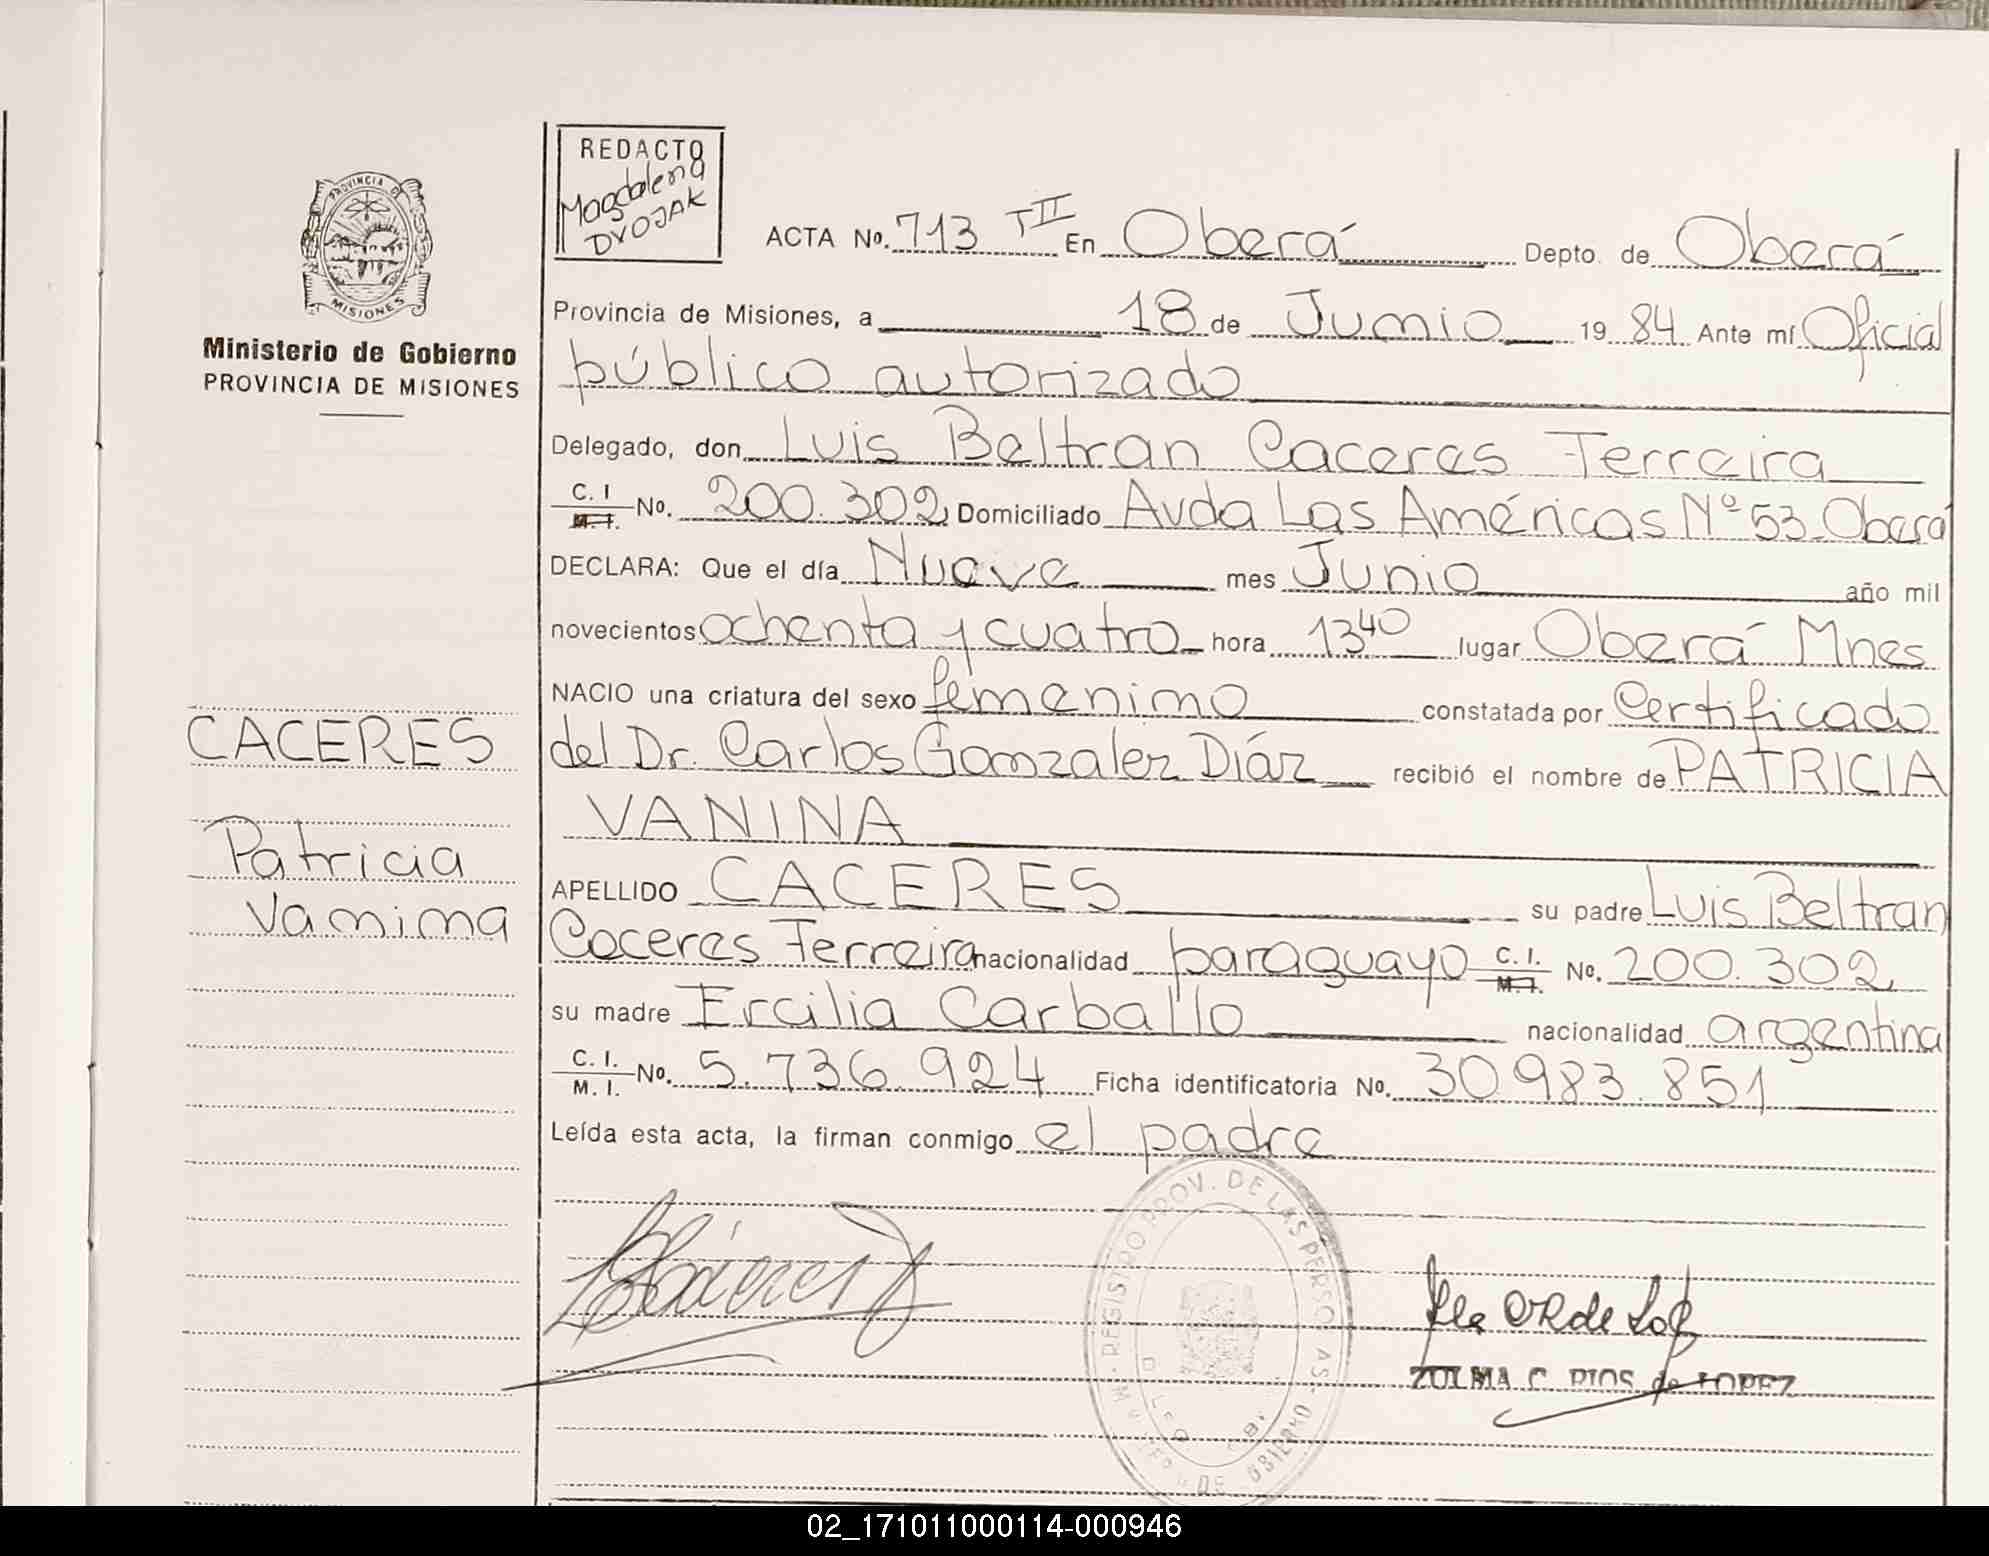 REDACTO
Magdalena
DVOJAK
ACTA No. 713 TII En Oberá Depto. de Oberá
PROVINCIA DE
MISIONES
Provincia de Misiones, a 18 de Junio 19 84 Ante mí Oficial
Ministerio de Gobierno
PROVINCIA DE MISIONES
público autorizado
Delegado, don Luis Beltran Caceres Ferreira
C. I
M. I. No. 200.302 Domiciliado Avda Las Américas Nº 53 Oberá
DECLARA: Que el día Nueve mes Junio año mil
novecientos ochenta y cuatro hora 13 40 lugar Oberá Mnes
NACIO una criatura del sexo femenino constatada por Certificado
CACERES
del Dr. Carlos Gonzalez Díaz recibió el nombre de PATRICIA
VANINA
Patricia
Vanina
APELLIDO CACERES su padre Luis Beltran
Caceres Ferreira nacionalidad paraguayo C. I.
M. I. No. 200.302
su madre Ercilia Carballo nacionalidad argentina
C. I.
M. I. No. 5.736.924 Ficha identificatoria No. 30.983.851
Leída esta acta, la firman conmigo el padre
REGISTRO PROV. DE LAS PERSONAS
ZULMA C. RIOS de LOPEZ
02_171011000114-000946